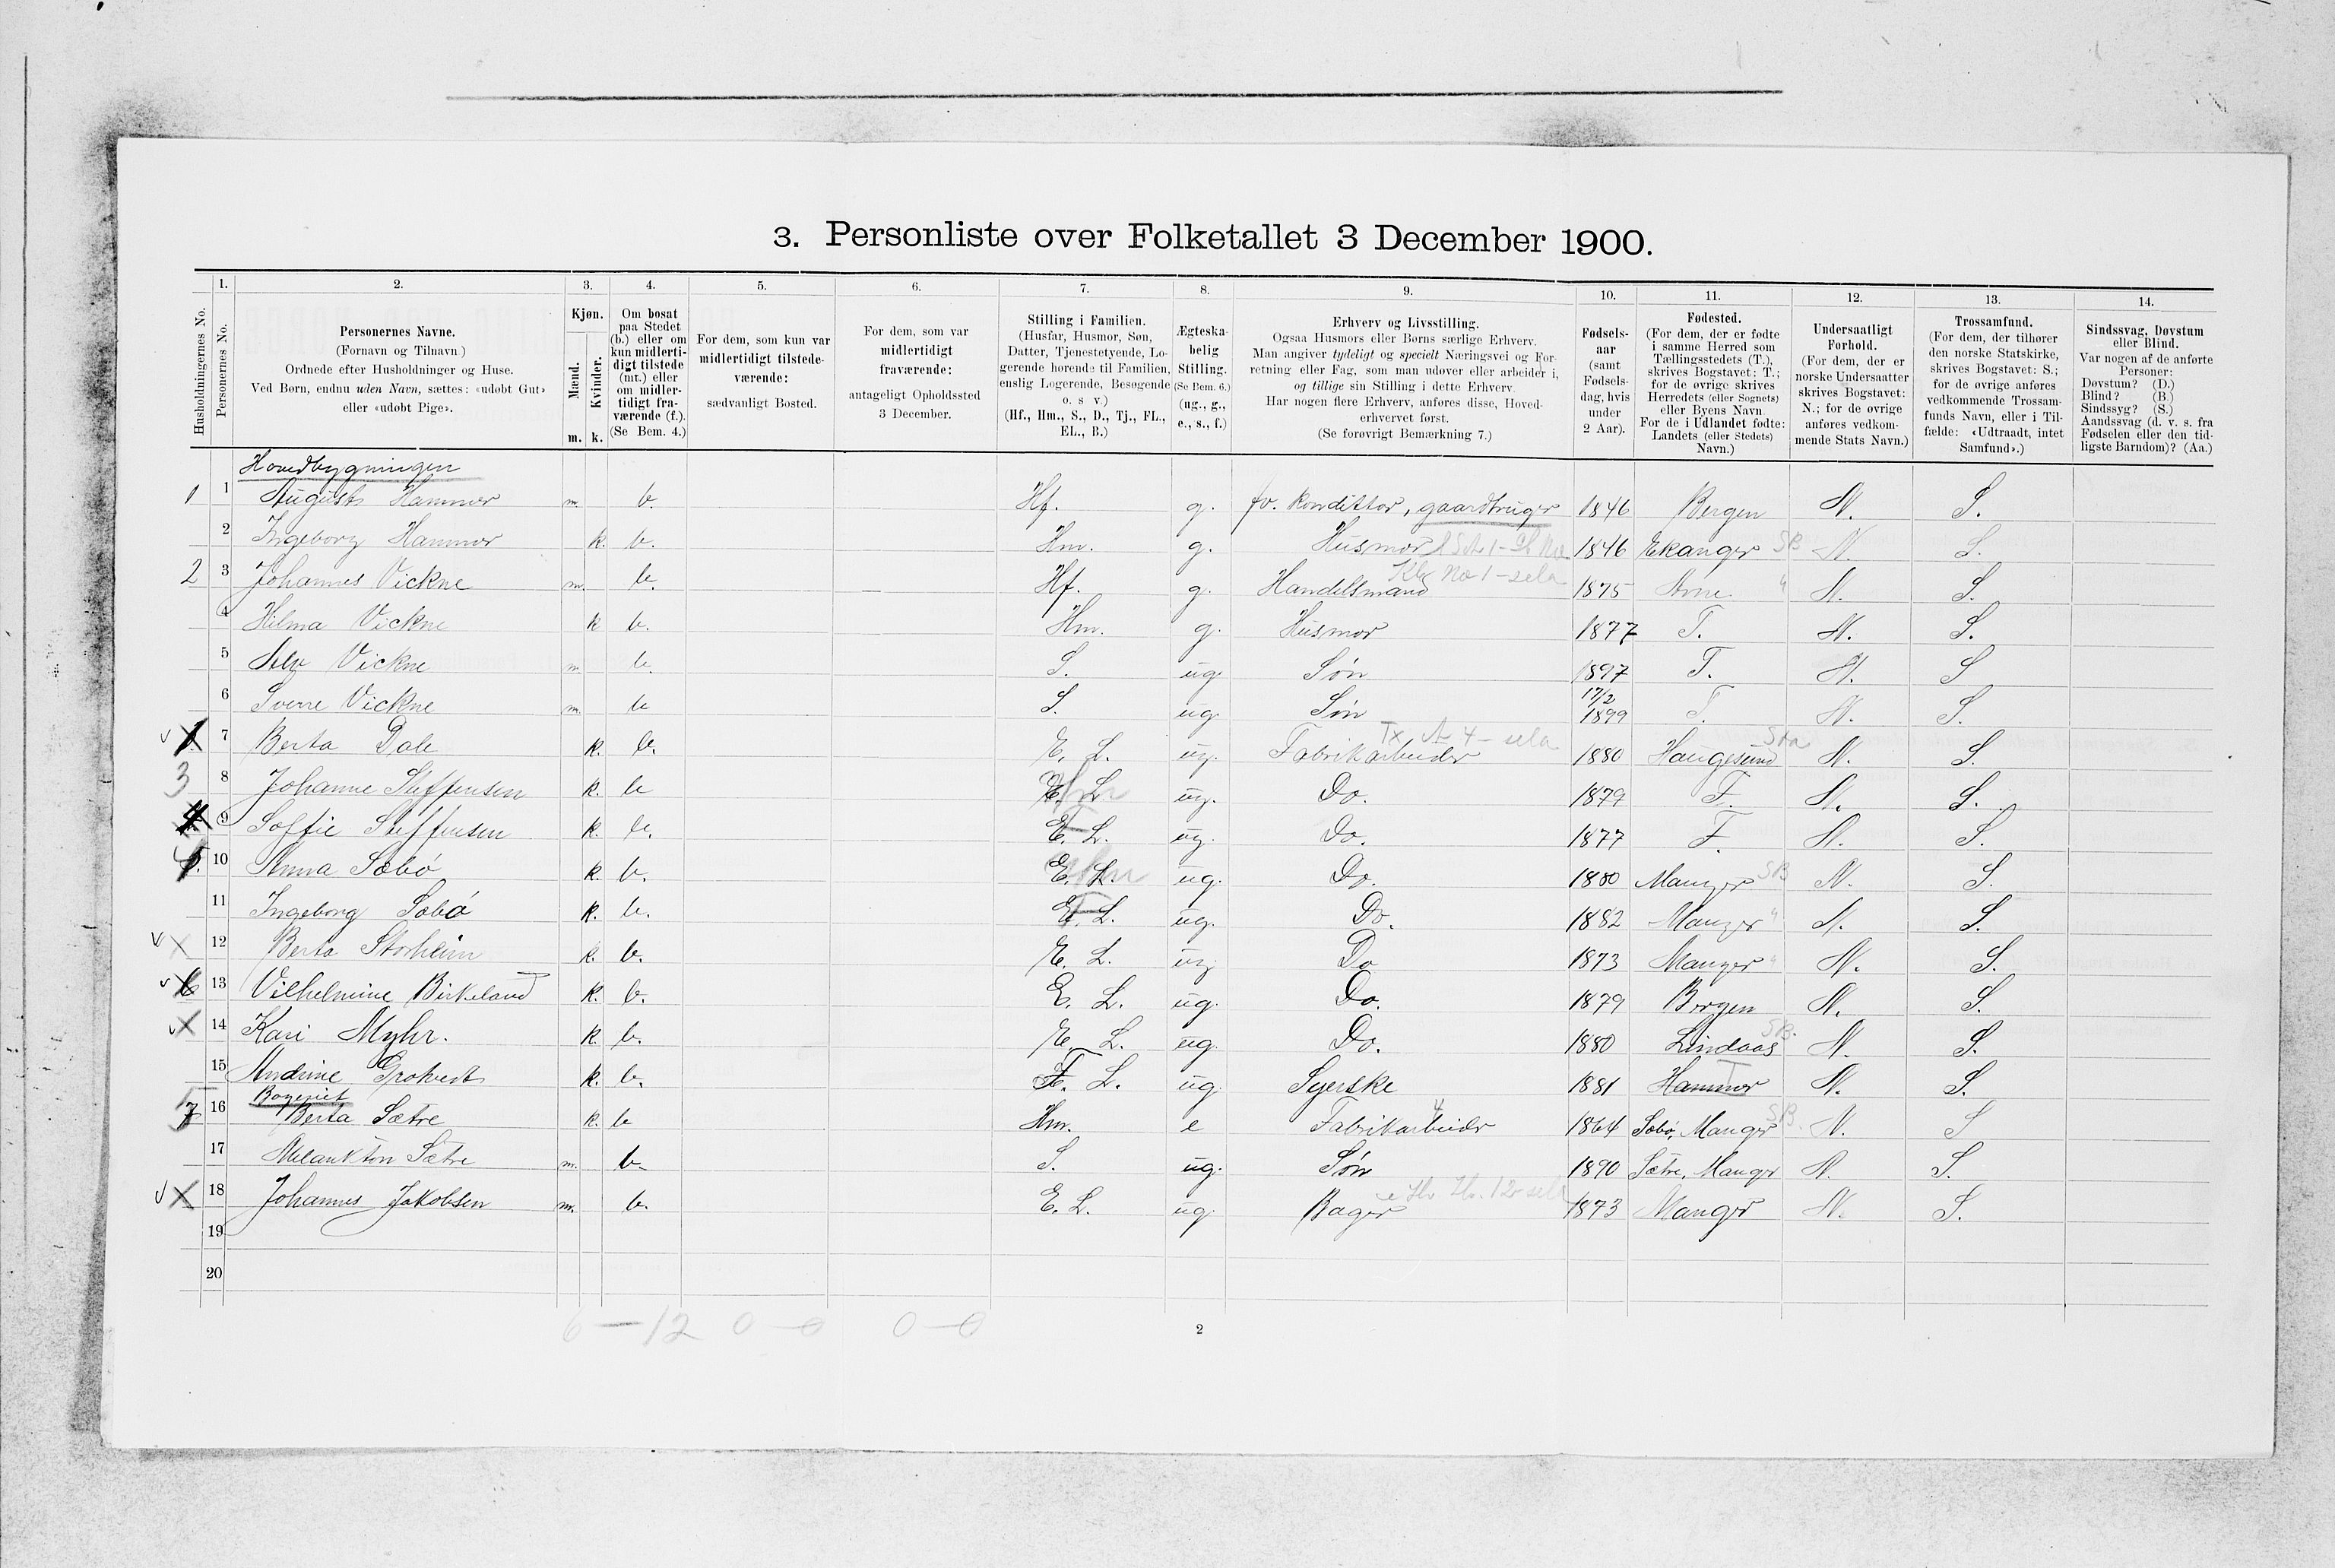 3. Personliste over Folketallet 3 December 1900.
1. 2. 3. 4. 5. 6. 7. 8. 9. 10. 11. 12. 13. 14.
Husholdningernes No.
Personernes No.
Personernes Navne.
(Fornavn og Tilnavn)
Ordnede efter Husholdninger og Huse.
Ved Børn, endnu uden Navn, sættes: «udøbt Gut»
eller «udøbt Pige».
Kjøn.
Mænd.
Kvinder.
m. k.
Om bosat
paa Stedet
(b.) eller om
kun midlerti-
digt tilstede
(mt.) eller
om midler-
tidigt fra-
værende (f.).
(Se Bem. 4.)
For dem, som kun var
midlertidigt tilstede-
værende:
sædvanligt Bosted.
For dem, som var
midlertidigt
fraværende:
antageligt Opholdssted
3 December.
Stilling i Familien.
(Husfar, Husmor, Søn,
Datter, Tjenestetyende, Lo-
gerende hørende til Familien,
enslig Logerende, Besøgende
o. s v.)
(Hf., Hm., S., D., Tj., FL.,
EL., B.)
Ægteska-
belig
Stilling.
(Se Bem. 6.)
(ug., g.,
e., s., f.)
Erhverv og Livsstilling.
Ogsaa Husmors eller Børns særlige Erhverv.
Man angiver tydeligt og specielt Næringsvei og For-
retning eller Fag, som man udøver eller arbeider i,
og tillige sin Stilling i dette Erhverv.
Har nogen flere Erhverv, anføres disse, Hoved-
erhvervet først.
(Se forøvrigt Bemærkning 7.)
Fødsels-
aar
(samt
Fødsels-
dag, hvis
under
2 Aar).
Fødested.
(For dem, der er fødte
i samme Herred som
Tællingsstedets (T.),
skrives Bogstavet: T.;
for de øvrige skrives
Herredets (eller Sognets)
eller Byens Navn
For de i Udlandet fødte:
Landets (eller Stedets)
Navn.)
Undersaatligt
Forhold.
(For dem, der er
norske Undersaatter
skrives Bogstavet:
N.; for de øvrige
anføres vedkom-
mende Stats Navn.)
Trossamfund.
(For dem, der tilhører
den norske Statskirke,
skrives Bogstavet: S.;
for de øvrige anføres
vedkommende Trossam-
funds Navn, eller i Til-
fælde: «Udtraadt, intet
Samfund».)
Sindssvag, Døvstum
eller Blind.
Var nogen af de anførte
Personer:
Døvstum? (D.)
Blind? (B.)
Sindssyg? (S.)
Aandssvag (d. v. s. fra
Fødselen eller den tid-
ligste Barndom)? (Aa.)
Hovedbygningen
1 1 August Hammer m. b. Hf. g. fv. Konditor, gaardbruger 1846 Bergen N. S.
2 Ingeborg Hammer k. b. Hm. g. Husmor 1846 Ekanger SB N. S.
2 3 Johannes Vickne m. b. Hf. g. Handelsmand 1875 Arne N. S.
4 Hilma Vickne k b. Hm. g. Husmor 1877 T. N. S.
5 Alv Vickne m b. S. ug Søn 1897 T. N. S
6 Sverre Vickne m. b S. ug. Søn 17/2 1899 T. N. S.
7 Berta Dale k. b. E. L. ug. Fabrikarbeider 1880 Haugesund N. S.
3 8 Johanne Steffensen k. b E. L. ug. Do. 1879 T. N. S.
4 9 Soffie Steffensen k. b. E. L. ug. Do. 1877 T. N. S.
10 Anna Sæbø k. b. E. L. ug. Do. 1880 Manger SB N. S.
11 Ingeborg Sæbø k. b. E. L. ug. Do. 1882 Manger N. S.
12 Berta Storheim k. b. E. L. ug. Do 1873 Manger N. S.
6 13 Vilhelmine Birkeland k. b. E. L. ug. Do. 1879 Bergen N. S.
14 Kari Myhr. k. b. E. L. ug. Do. 1880 Lindaas SB. N. S.
15 Andrine k. b. F. L. ug. Syerske 1881 Hammer N. S.
Bageriet
7 16 Berta Sætre k. b Hm. e Fabrikarbeider 1864 Sæbø, Manger SB. N. S
17 Melankton Sætre m. b. S. ug. Søn 1890 Sætre, Manger N. S.
18 Johannes Jakobsen m. b. E. L. ug. Bager 1873 Manger N. S.
19
20
6 — 12 0 — 0 0 — 0
2